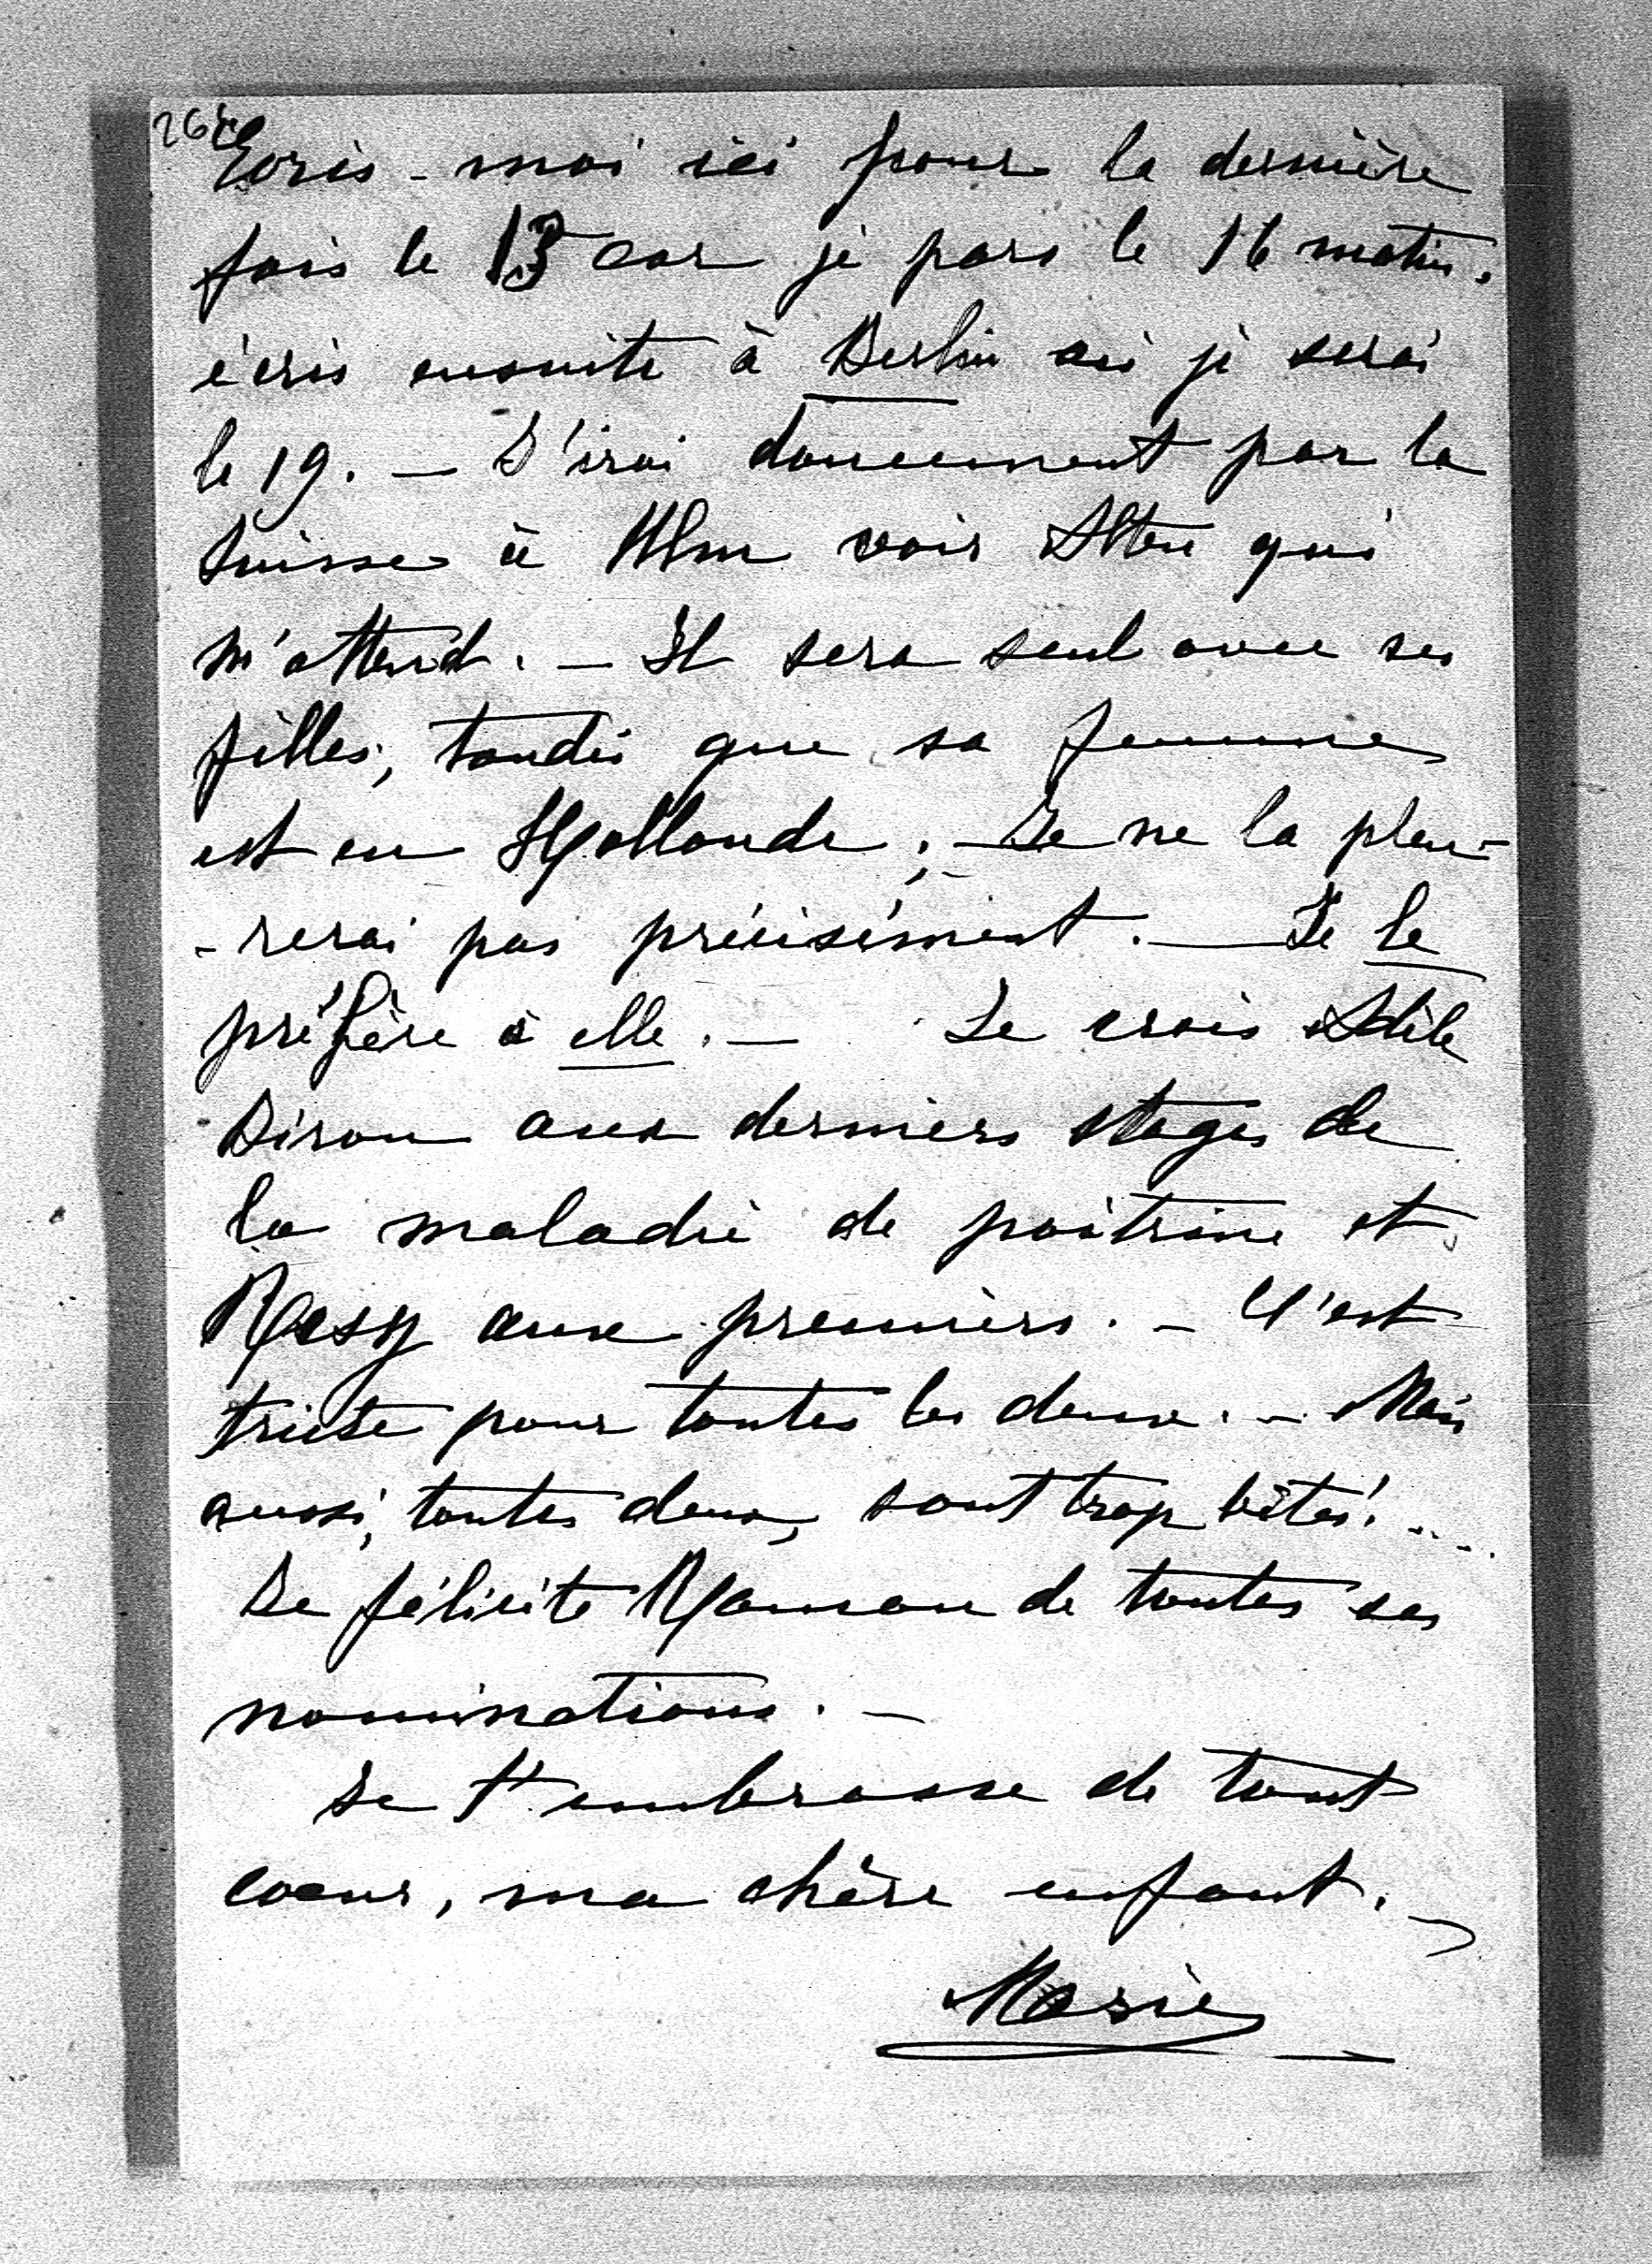 Ecris-moi ici pour la dernière
fois le 13 car je pars le 16 matin.
écris ensuite à Berlin où je serai
le 19. — J'irai doucement par la
Suisse à Ulm voir Alten qui
m'attend. — Il sera seul avec ses
filles, tandis que sa femme
est en Hollande ; — Je ne la pleu-
-rerai pas précisément. — Je le
préfère à elle. — Je crois Adèle
Biron aux derniers stages de
la maladie de poitrine et
aux premiers. — C'est
triste pour toutes les deux. — Mais
aussi, toutes deux, sont trop bêtes! ....
Je félicite Maman de toutes ses
nominations. —
Je t'embrasse de tout
coeur, ma chère enfant.
Marie